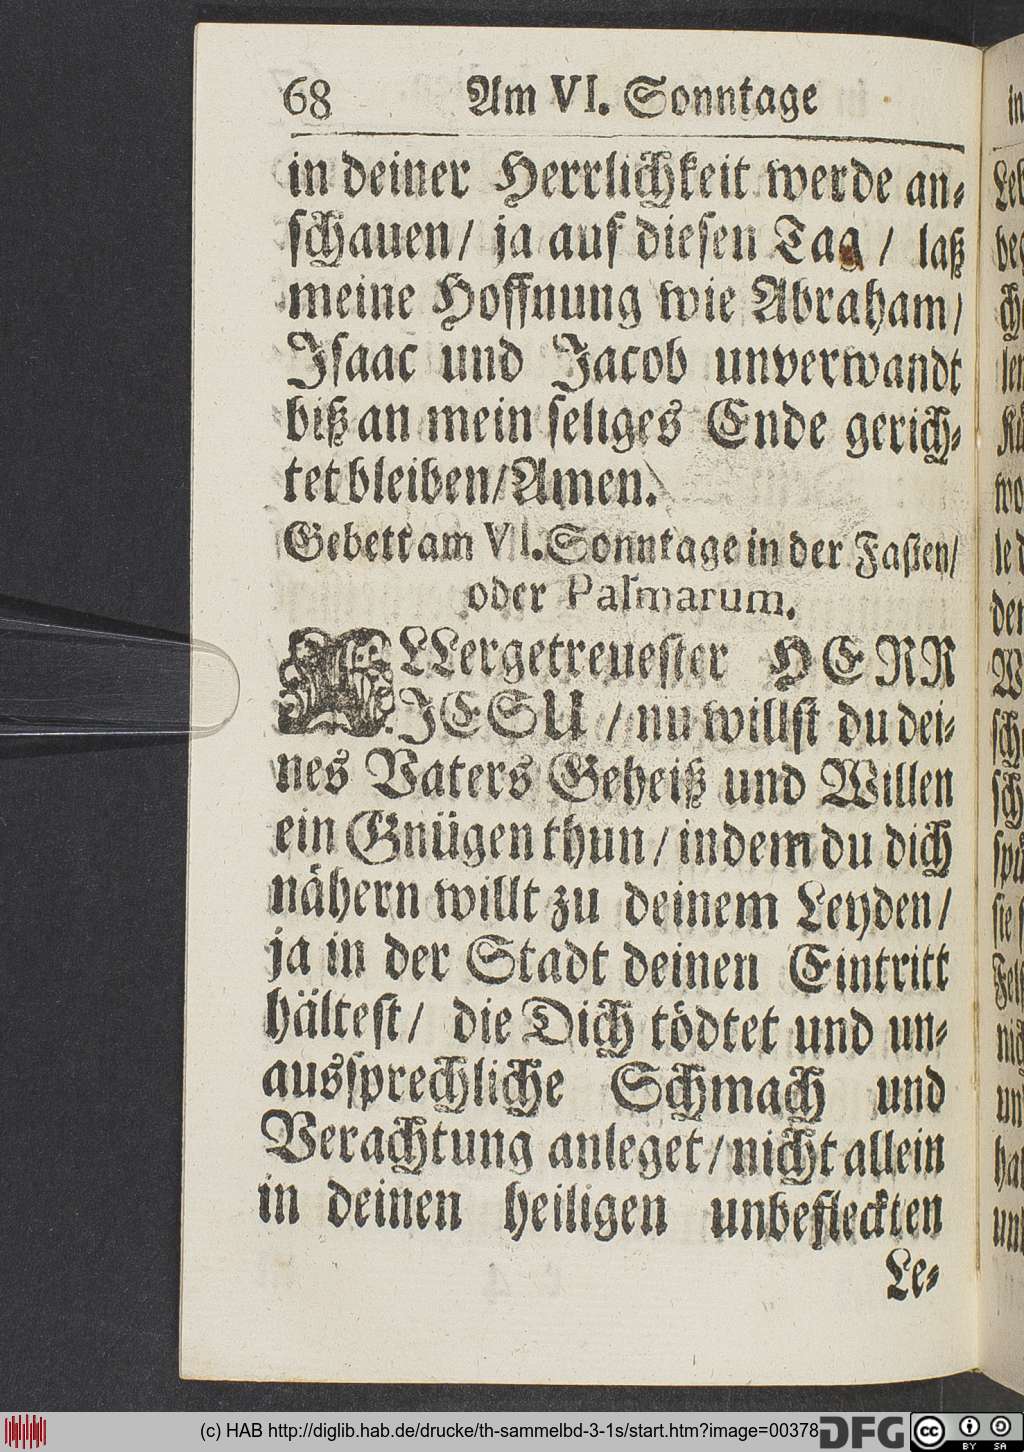 68 Am VI. Sonntage
in deiner Herrlichkeit werde an⸗
schauen/ ja auf diesen Tag / laß
meine Hoffnung wie Abraham/
Isaac und Jacob unverwandt
biß an mein seliges Ende gerich⸗
tet bleiben/Amen.
Gebett am VI. Sonntage in der Fasten/
oder Palmarum.
ALLergetreuester HERR
JESU / nu willst du dei⸗
nes Vaters Geheiß und Willen
ein Gnügen thun / indem du dich
nähern willt zu deinem Leyden/
ja in der Stadt deinen Eintritt
hältest/ die Dich tödtet und un⸗
aussprechliche Schmach und
Verachtung anleget/nicht allein
in deinen heiligen unbefleckten
Le⸗
(c) HAB http://diglib.hab.de/drucke/th-sammelbd-3-1s/start.htm?image=00378
DFG
cc BY SA